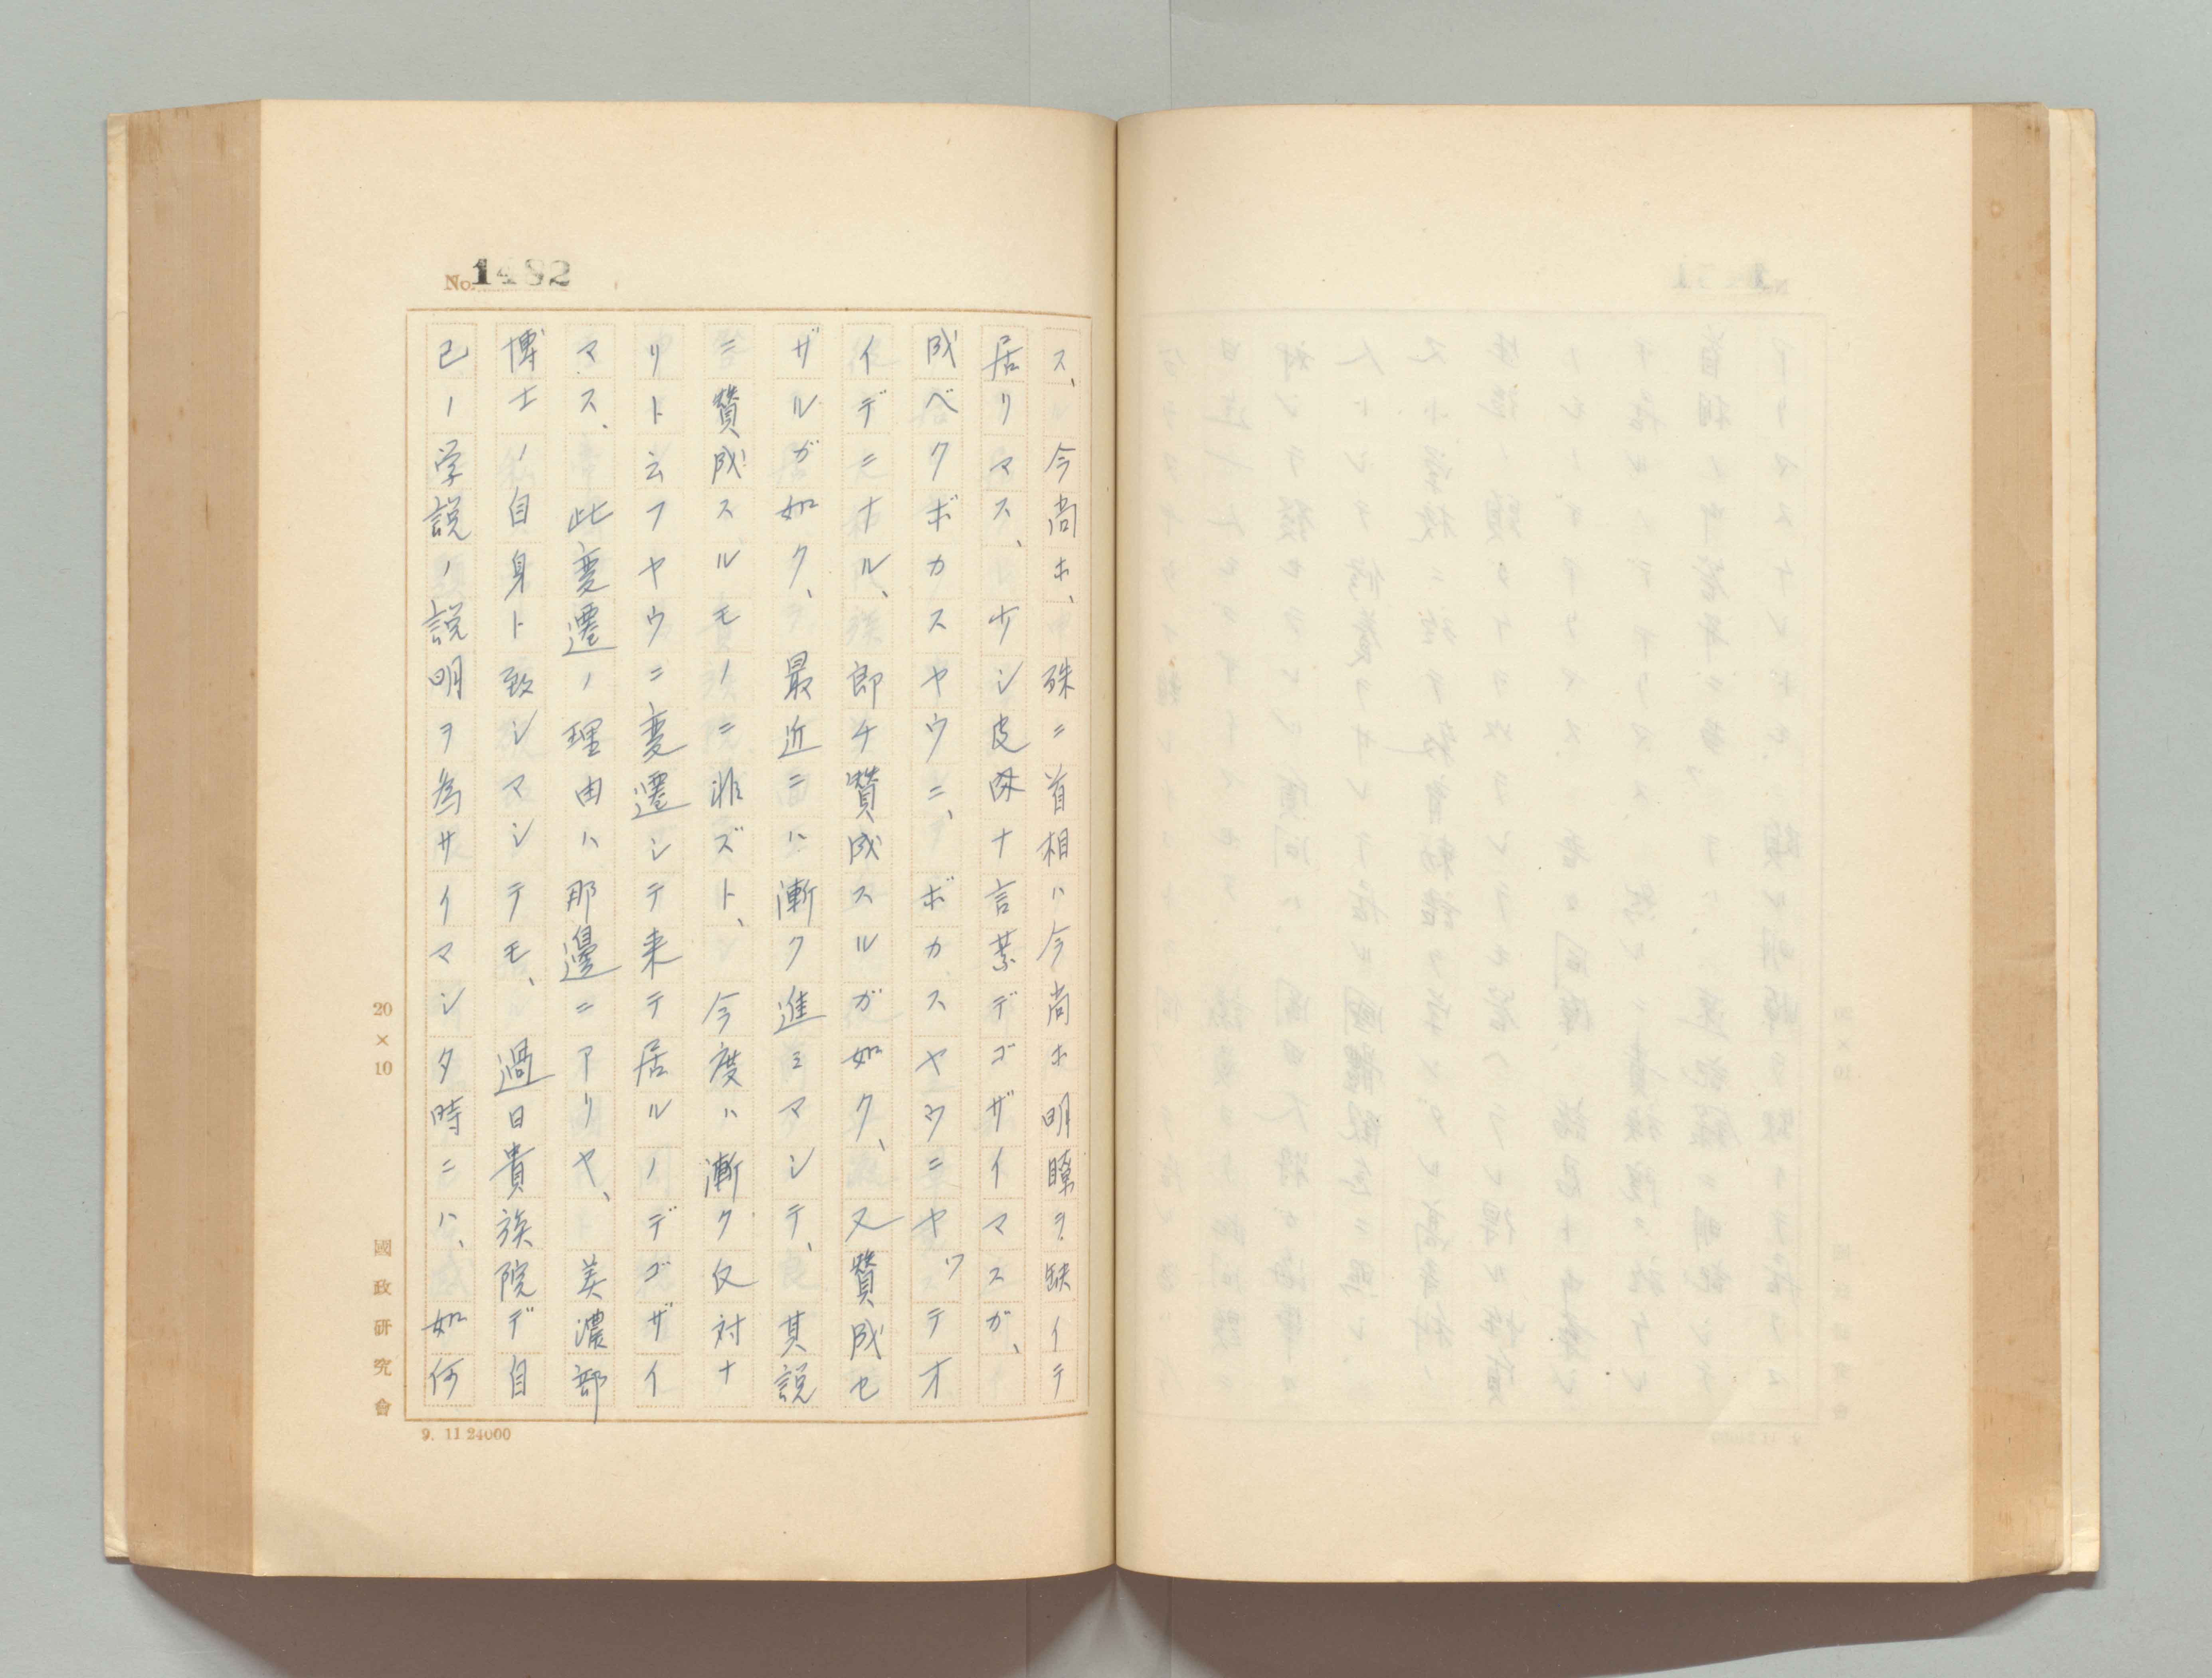 No. 1482
ス、今尚ホ、殊ニ首相ハ今尚ホ明瞭ヲ缺イテ
居リマス、少シ皮肉ナ言葉デゴザイマスガ、
成ベクボカスヤウニ、ボカスヤウニヤッテオ
イデニナル、即チ賛成スルガ如ク、又賛成セ
ザルガ如ク、最近ニハ漸ク進ミマシテ、其説
ニ賛成スルモノニ非ズト、今度ハ漸ク反対ナ
リト云フヤウニ変遷シテ来テ居ルノデゴザイ
マス、此変遷ノ理由ハ那邊ニアリヤ、美濃部
博士ノ自身ト致シマシテモ、過日貴族院デ自
己ノ学説ノ説明ヲ為サイマシタ時ニハ、如何
20×10
國政研究會
9. 11 24000